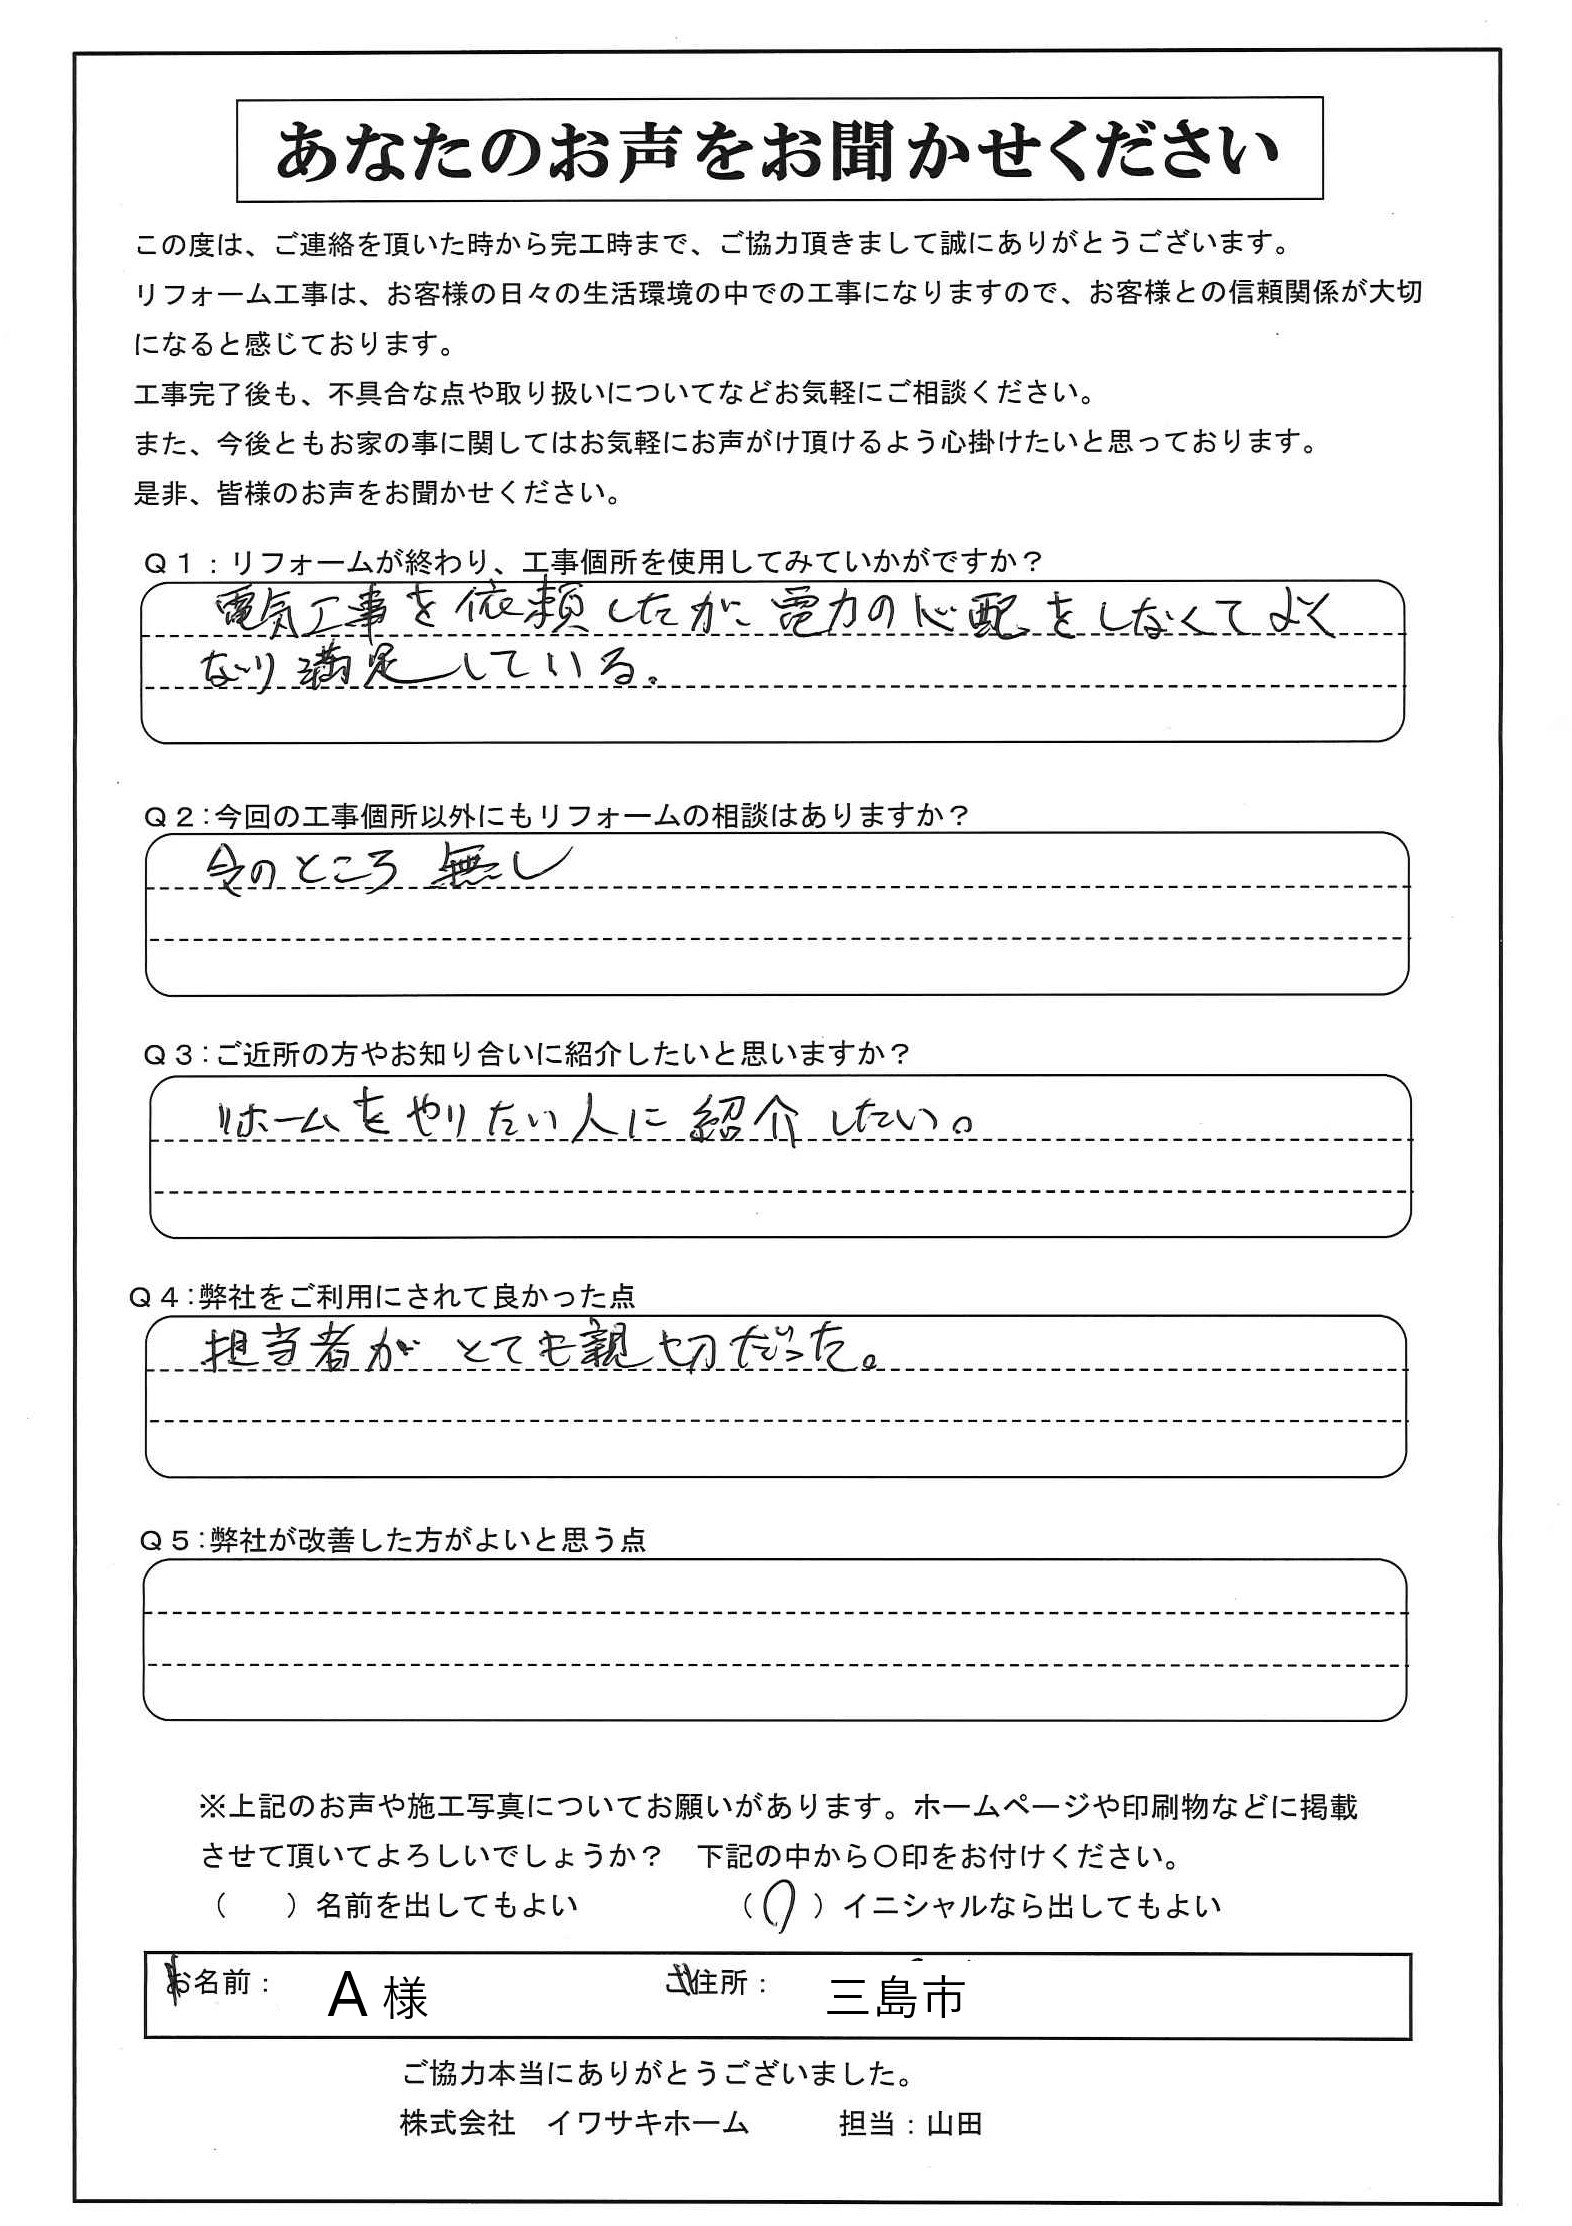 あなたのお声をお聞かせください
この度は、ご連絡を頂いた時から完工時まで、ご協力頂きまして誠にありがとうございます。
リフォーム工事は、お客様の日々の生活環境の中での工事になりますので、お客様との信頼関係が大切
になると感じております。
工事完了後も、不具合な点や取り扱いについてなどお気軽にご相談ください。
また、今後ともお家の事に関してはお気軽にお声がけ頂けるよう心掛けたいと思っております。
是非、皆様のお声をお聞かせください。
Q1:リフォームが終わり、工事個所を使用してみていかがですか?
電気工事を依頼したが、電力の心配をしなくてよく
なり満足している。
Q2:今回の工事個所以外にもリフォームの相談はありますか?
今のところ無し
Q3:ご近所の方やお知り合いに紹介したいと思いますか?
リホームをやりたい人に紹介したい。
Q4:弊社をご利用にされて良かった点
担当者がとても親切だった。
Q5:弊社が改善した方がよいと思う点
※上記のお声や施工写真についてお願いがあります。ホームページや印刷物などに掲載
させて頂いてよろしいでしょうか? 下記の中から〇印をお付けください。
( )名前を出してもよい (〇)イニシャルなら出してもよい
お名前: A様 ご住所: 三島市
ご協力本当にありがとうございました。
株式会社 イワサキホーム 担当:山田